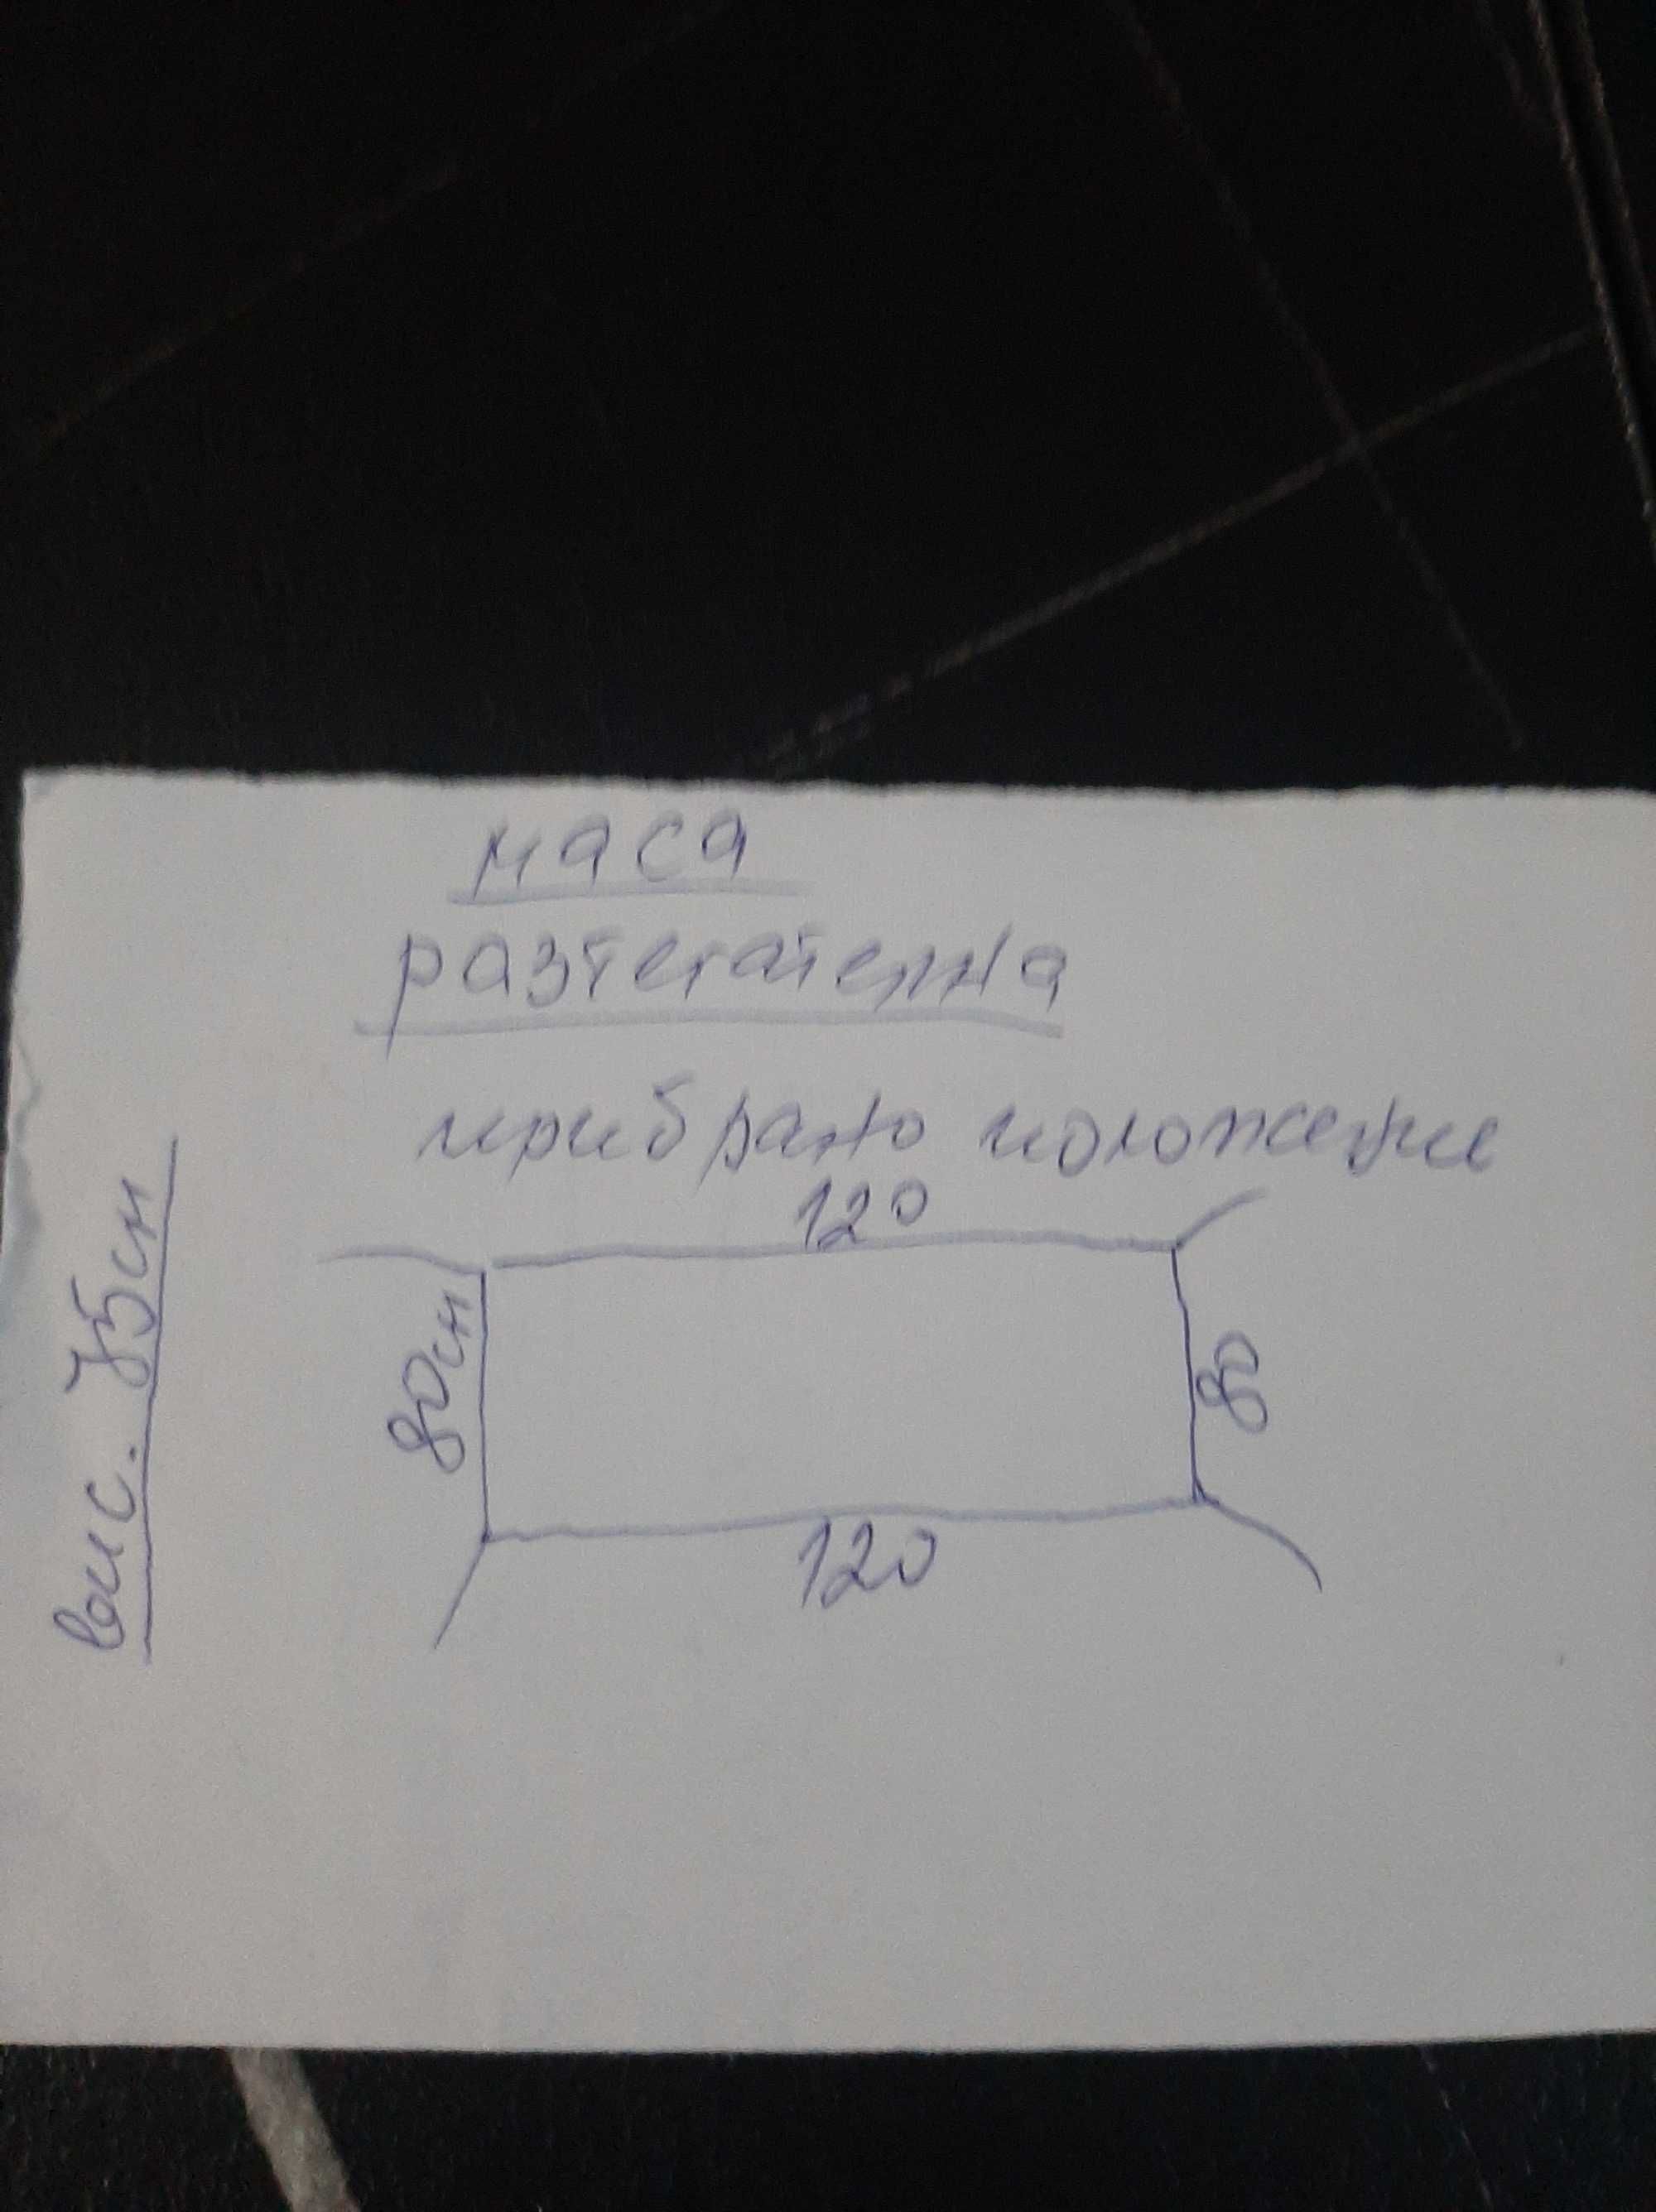 маса
разтегателна
прибрано положение
120
80см
80
120
вис. 75см